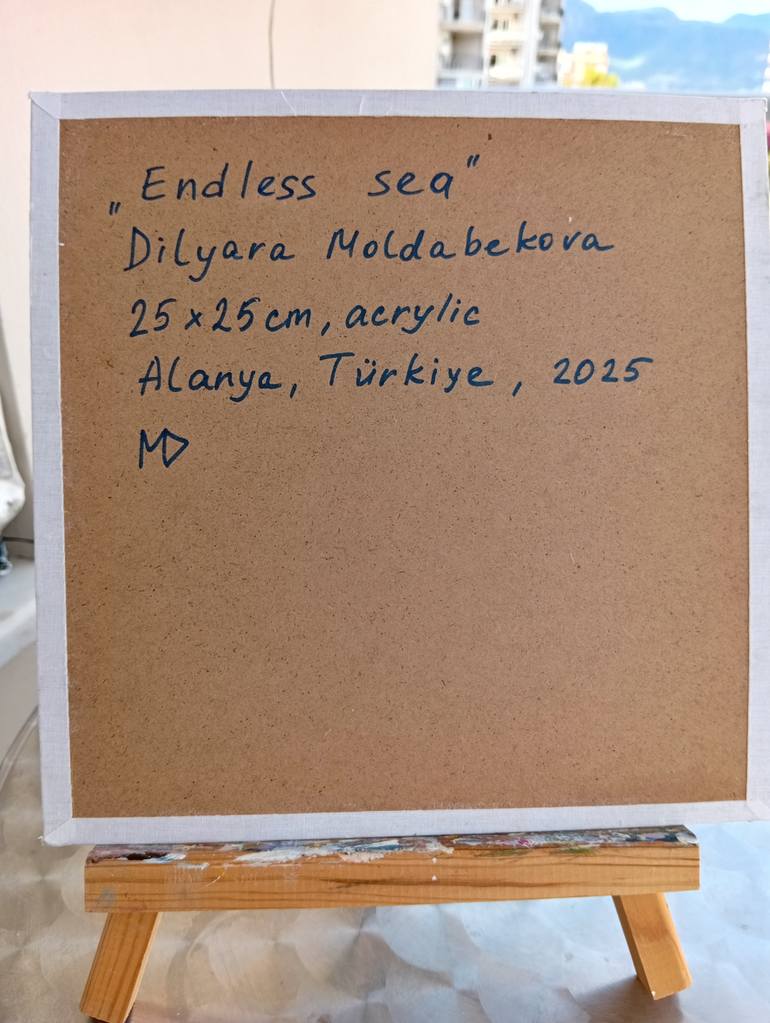 „Endless sea"
Dilyara Moldabekova
25x25cm, acrylic
Alanya, Türkiye, 2025
MD